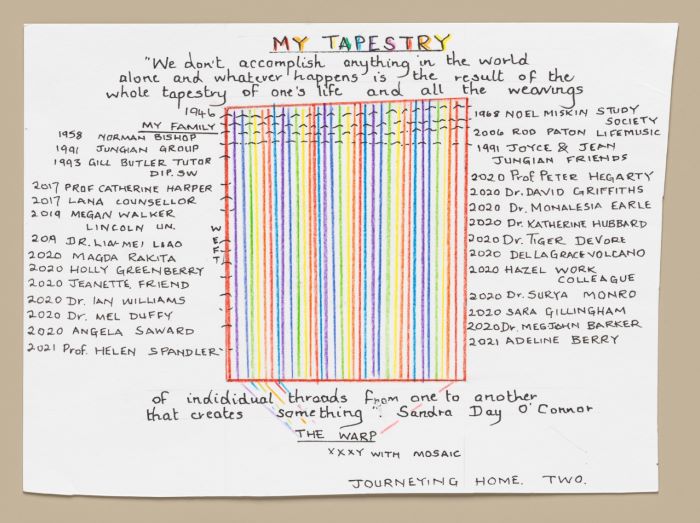 MY TAPESTRY
"We don't accomplish anything in the world
alone and whatever happens is the result of the
whole tapestry of one's life and all the weavings
1946
MY FAMILY
1958 NORMAN BISHOP
1991 JUNGIAN GROUP
1993 GILL BUTLER TUTOR
DIP. SW
2017 PROF CATHERINE HARPER
2017 LANA COUNSELLOR
2019 MEGAN WALKER
LINCOLN UN.
2019 DR. LIH-MEI LIAO
2020 MAGDA RAKITA
2020 HOLLY GREENBERRY
2020 JEANETTE, FRIEND
2020 Dr. IAN WILLIAMS
2020 Dr. MEL DUFFY
2020 ANGELA SAWARD
2021 Prof. HELEN SPANDLER
WEFT
1968 NOEL MISKIN STUDY
SOCIETY
2006 ROD PATON LIFEMUSIC
1991 JOYCE & JEAN
JUNGIAN FRIENDS
2020 Prof PETER HEGARTY
2020 Dr. DAVID GRIFFITHS
2020 Dr. MONALESIA EARLE
2020 Dr. KATHERINE HUBBARD
2020 Dr. TIGER DEVORE
2020 DELLAGRACEVOLCANO
2020 HAZEL WORK
COLLEAGUE
2020 Dr. SURYA MONRO
2020 SARA GILLINGHAM
2020 Dr. MEGJOHN BARKER
2021 ADELINE BERRY
of indididual threads from one to another
that creates something". Sandra Day O'Connor
THE WARP
XXXY WITH MOSAIC
JOURNEYING HOME. TWO.